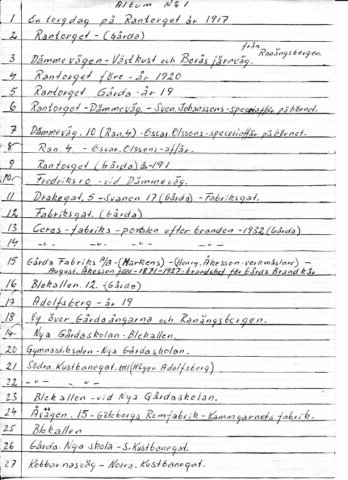 Album No 1
1 En torgdag på Rantorget år 1917
2 Rantorget - (Gårda)
från Ranängsbergen
3 Dämmevägen - Västkust och Borås järnväg.
4 Rantorget före - år 1920
5 Rantorget Gårda - år 19
6 Rantorget - Dämmeväg. - Sven Johanssons - speceriaffär på hörnet.
7 Dämmeväg. 10 (Ran. 4) - Oscar Olssons - speceriaffär på hörnet.
8 Ran. 4. - Oscar Olssons - affär.
9 Rantorget (Gårda) år 191
10 Fredriksro - vid Dämmeväg.
11 Drakegat. 5 - Svanen 17 (Gårda) - Fabriksgat.
12 Fabriksgat. (Gårda)
13 Ceres - fabriks - portalen efter branden - 1932 (Gårda)
14 -"- -"- -"-
15 Gårda Fabriks A/B - (Markens) - (Henry. Åkesson - verkmästare) -
August. Åkesson 1871-1927 - brandchef för Gårda Brandkår
16 Blekallen. 12. (Gårda)
17 Adolfsberg - år 19
18 Vy över Gårdaängarna och Ranängsbergen.
19 Nya Gårdaskolan - Blekallen.
20 Gymnastiksalen - Nya Gårdaskolan.
21 Södra. Kustbanegat. till (Höger Adolfsberg)
22 -"- -"-
23 Blekallen - vid Nya Gårdaskolan.
24 Åvägen. 15 - Göteborgs Remfabrik - Kammgarnets fabrik.
25 Blekallen
26 Gårda. Nya skola - S. Kustbanegat.
27 Kobbarnasväg - Norra. Kustbanegat.